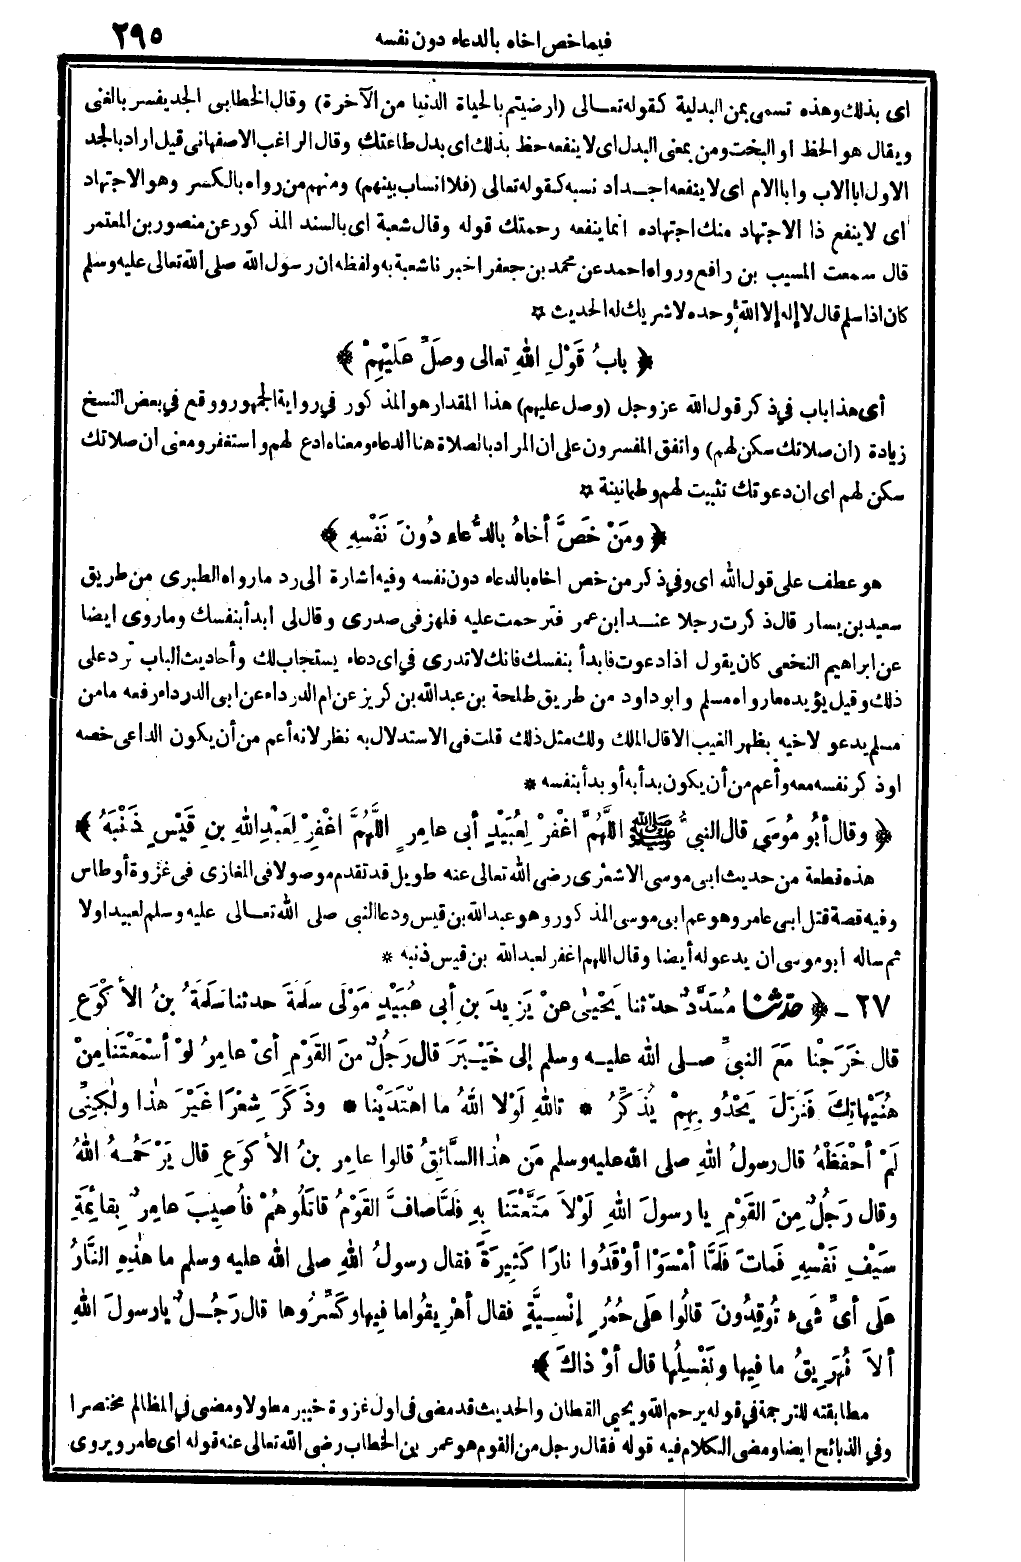 فيما خص اخاه بالدعاء دون نفسه ٢٩٥
اى بذلك وهذه تسمى بمن البدلية كقوله تعالى (ارضيتم بالحياة الدنيا من الآخرة) وقال الخطابى الجد يفسر بالغنى
ويقال هو الحظ او البخت ومن بمعنى البدل اى لا ينفعه حظ بذلك اى بدل طاعتك وقال الراغب الاصفهانى قيل اراد بالجد
الاول ابا الاب وابا الام اى لا ينفعه اجداد نسبه كقوله تعالى (فلا انساب بينهم) ومنهم من رواه بالكسر وهو الاجتهاد
اى لا ينفع ذا الاجتهاد منك اجتهاده انما ينفعه رحمتك قوله وقال شعبة اى بالسند المذكور عن منصور بن المعتمر
قال سمعت المسيب بن رافع ورواه احمد عن محمد بن جعفر اخبرنا شعبة به ولفظه ان رسول الله صلى الله تعالى عليه وسلم
كان اذا سلم قال لا إله إلا الله وحده لا شريك له الحديث ☆
﴿ بابُ قَوْلِ اللهِ تعالى وصَلِّ عَلَيْهِمْ ﴾
أى هذا باب في ذكر قول الله عز وجل (وصل عليهم) هذا المقدار هو المذكور في رواية الجمهور ووقع في بعض النسخ
زيادة (ان صلاتك سكن لهم) واتفق المفسرون على ان المراد بالصلاة هنا الدعاء ومعناه ادع لهم واستغفر ومعنى ان صلاتك
سكن لهم اى ان دعوتك تثبيت لهم وطمانينة ☆
﴿ ومَنْ خَصَّ أخاهُ بالدُّعاءِ دُونَ نَفْسِهِ ﴾
هو عطف على قول الله اى وفي ذكر من خص اخاه بالدعاء دون نفسه وفيه اشارة الى رد ما رواه الطبرى من طريق
سعيد بن يسار قال ذكرت رجلا عند ابن عمر فترحمت عليه فلهز فى صدرى وقال لى ابدأ بنفسك وما روى ايضا
عن ابراهيم النخعى كان يقول اذا دعوت فابدأ بنفسك فانك لا تدرى في اى دعاء يستجاب لك وأحاديث الباب ترد على
ذلك وقيل يؤيده ما رواه مسلم وابو داود من طريق طلحة بن عبدالله بن كريز عن ام الدرداء عن ابى الدرداء رفعه ما من
مسلم يدعو لاخيه بظهر الغيب الا قال الملك ولك مثل ذلك قلت فى الاستدلال به نظر لانه أعم من أن يكون الداعى خصه
او ذكر نفسه معه وأعم من أن يكون بدأ به أو بدأ بنفسه *
﴿ وقال أبُو مُوسَى قال النبىُّ ﷺ اللَّهُمَّ اغْفِرْ لِعُبَيْدٍ أبى عامِرٍ اللَّهُمَّ اغْفِرْ لِعَبْدِاللهِ بنِ قَيْسٍ ذَنْبَهُ ﴾
هذه قطعة من حديث ابى موسى الاشعرى رضى الله تعالى عنه طويل قد تقدم موصولا فى المغازى فى غزوة أوطاس
وفيه قصة قتل ابى عامر وهو عم ابى موسى المذكور وهو عبد الله بن قيس ودعا النبى صلى الله تعالى عليه وسلم لعبيد اولا
ثم ساله ابو موسى ان يدعو له أيضا وقال اللهم اغفر لعبد الله بن قيس ذنبه *
٢٧ ـ ﴿ حَدَّثَنَا مُسَدَّدٌ حدّثنا يَحْيَى عنْ يَزِيدَ بنِ أبى عُبَيْدٍ مَوْلَى سلَمَةَ حدثنا سَلَمَةُ بنُ الأكْوَعِ
قال خَرَجْنا مَعَ النبيِّ صلى الله عليه وسلم إلى خَيْبَرَ قال رَجُلٌ منَ القَوْمِ أىْ عامِرُ لوْ أسْمَعْتَنا مِنْ
هُنَيْهاتِكَ فَنَزَلَ يَحْدُو بِهِمْ يُذَكِّرُ * تاللهِ لَوْلا اللهُ ما اهْتَدَيْنا * وذَكَرَ شِعْرًا غَيْرَ هٰذا ولٰكِنِّى
لَمْ أحْفَظْهُ قال رسولُ اللهِ صلى الله عليه وسلم مَن هٰذا السَّائِقُ قالوا عامِرُ بنُ الأكوَعِ قال يَرْحَمُهُ اللهُ
وقال رَجُلٌ مِنَ القَوْمِ يا رسولَ اللهِ لَوْلاَ مَتَّعْتَنا بِهِ فلَمَّا صافَّ القَوْمُ قاتَلُوهُمْ فأُصِيبَ عامِرٌ بِقائِمَةِ
سَيْفِ نَفْسِهِ فَماتَ فَلَمَّا أمْسَوْا أوْقَدُوا نارًا كَثِيرَةً فقال رسولُ اللهِ صلى الله عليه وسلم ما هٰذِهِ النَّارُ
عَلَى أىِّ شَىْءٍ تُوقِدُونَ قالُوا عَلَى حُمُرٍ إنْسِيَّةٍ فقال أهْرِيقُوا ما فِيها وكَسِّرُوها قال رَجُلٌ يا رسولَ اللهِ
ألاَ نُهَرِيقُ ما فِيها ونَغْسِلُها قال أوْ ذاكَ ﴾
مطابقته للترجمة في قوله يرحم الله ويحيى القطان والحديث قد مضى فى اول غزوة خيبر مطولا ومضى في المظالم مختصرا
وفي الذبائح ايضا ومضى الكلام فيه قوله فقال رجل من القوم هو عمر بن الخطاب رضى الله تعالى عنه قوله اى عامر ويروى